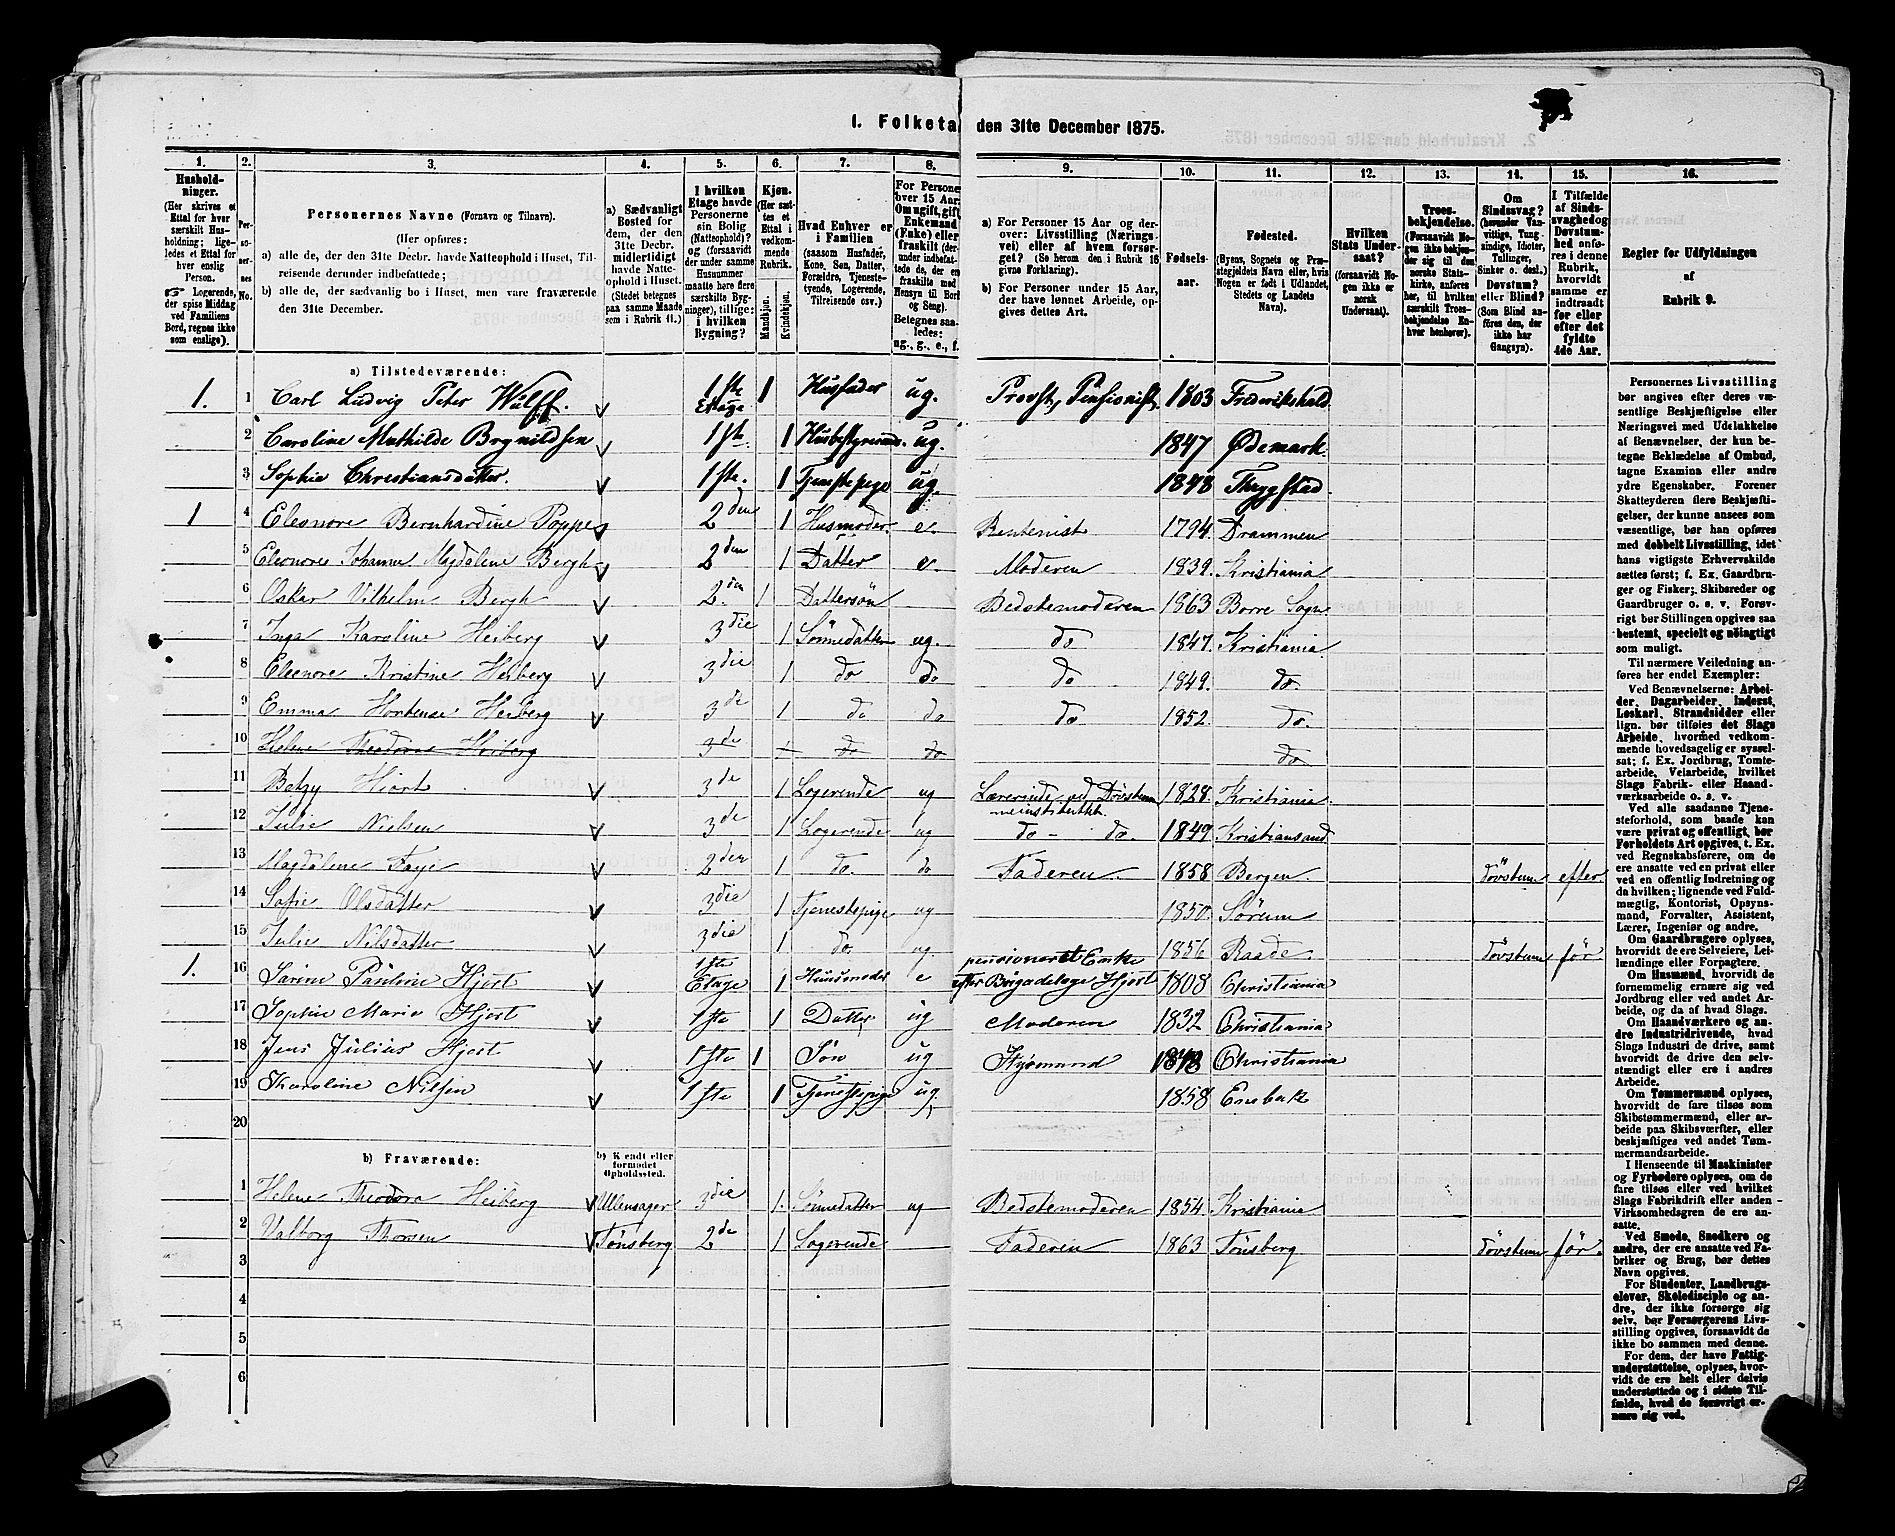 I. Folketa den 31te December 1875.
1. 2. 3. 4. 5. 6. 7. 8. 9. 10. 11. 12. 13. 14. 15. 16.
Husholdninger. (Her skrives et Ettal for hver særskilt Husholdning; ligeledes et Ettal for hver enslig Person. Logerende, der spise Middag ved Familiens Bord, regnes ikke som enslige).
Personernes No.
Personernes Navne (Fornavn og Tilnavn).
(Her opføres:
a) alle de, der den 31te Decbr. havde Natteophold i Huset, Tilreisende derunder indbefattede;
b) alle de, der sædvanlig bo i Huset, men vare fraværende den 31te December.
a) Sædvanligt Bosted for dem, der den 31te Decbr. midlertidigt havde Natteophold i Huset. (Stedet betegnes paa samme Maade som i Rubrik 11.)
I hvilken Etage havde Personerne sin Bolig (Natteophold)? og (forsaavidt der under samme Husnummer maatte høre flere særskilte Bygninger), tillige: i hvilken Bygning?
Kjøn. (Her sættes et Ettal i vedkommende Rubrik.
Mandkjøn. Kvindekjøn.
Hvad Enhver er i Familien (saasom Husfader, Kone, Søn, Datter, Forældre, Tjenestetyende, Logerende, Tilreisende osv.)
For Personer over 15 Aar: Om ugift, gift, Enkemand (Enke) eller fraskilt (derunder indbefattede de, der ere fraskilte med Hensyn til Bord og Seng). Betegnes saaledes: ug., g., e., f.
a) For Personer 15 Aar og derover: Livsstilling (Næringsvei) eller af hvem forsørget? (Se herom den i Rubrik 16 givne Forklaring).
b) For Personer under 15 Aar, der have lønnet Arbeide, opgives dettes Art.
Fødselsaar.
Fødested. (Byens, Sognets og Præstegjeldets Navn eller, hvis Nogen er født i Udlandet, Stedets og Landets Navn).
Hvilken Stats Undersaat? (forsaavidt Nogen ikke er norsk Undersaat).
Troesbekjendelse. (Forsaavidt Nogen ikke bekjender sig til den norske Statskirke, anføres her, til hvilken særskilt Troesbekjendelse Enhver henhører).
Om Sindssvag? (herunder Vanvittige, Tungsindige, Idioter, Tullinger, Sinker o. desl.) Døvstum? eller Blind? (Som Blind anføres den, der ikke har Gangsyn).
I Tilfælde af Sindssvaghed og Døvstumhed anføres i denne Rubrik, hvorvidt samme er indtraadt før eller efter det fyldte 4de Aar.
Regler for Udfyldningen af Rubrik 9.
a) Tilstedeværende:
1. 1 Carl Ludvig Peter Wulff. 1ste Etage 1 Husfader ug. Provst, Pensionist, 1803 Frederikshald
2 Caroline Mathilde Brynildsen 1ste. 1 Husbestyrerinde. ug. 1847 Ødemark
3 Sophia Christiansdatter. 1ste. 1 Tjenstepige ug. 1848 Thrygstad
1 4 Eleonore Bernhardine Poppe 2den 1 Husmoder e. Rentenist 1794 Drammen
5 Eleonore Johanne Magdalene Bergh 2den 1 Datter e. Moderen 1839. Kristiania
6 Oskar Vilhelm Bergh 2den 1 Dattersön Bedstemoderen 1863 Borre Sogn
7 Inga Karoline Heiberg 3die 1 Sönnedatter ug. do 1847. Kristiania
8 Eleonore Kristine Heiberg 3die 1 do do do 1849. do.
9 Emma Hortense Heiberg 3de 1 do do do 1852. do.
10 Helene Theodora Heiberg 3de 1 do do do
11 Betzy Hjort 3de 1 Logerende ug Lærerinde ved Dövstummeinstitutet. 1828. Kristiania
12 Julie Nielsen 3de 1 Logerende ug do - do. 1849. Kristiansand
13 Magdalene Faye 2den 1 do. do Faderen 1858 Bergen Dövstum efter
14 Sofie Olsdatter 3die 1 Tjenestepige ug 1850. Sörum
15 Julie Nilsdatter 3die 1 do. ug 1856 Raade Dövstum för
1. 16 Sarine Pauline Hjort 1ste Etage 1 Huusmoder e pensioneret Enke efter Brigadelæge Hjort 1808 Christiania
17 Sophie Marie Hjort 1ste 1 Datter ug Moderen 1832 Christiania
18 Jens Julius Hjort 1ste 1 Søn ug Christiania
19 Karoline Nilsen 1ste 1 Tjenestepige ug. 1858 Enebak
20
b) Fraværende:
b) Kjendt eller formodet Opholdssted.
1 Helene Theodora Heiberg Ullensager 3die 1. Sönnedatter ug Bedstemoderen 1854. Kristiania
2 Valborg Thorsen Tönsberg 2de 1 Logerende Faderen 1863 Tönsberg Dövstum för.
3
4
5
6
Personernes Livsstilling
bør angives efter deres væsentlige Beskjæftigelse eller
Næringsvei med Udelukkelse
af Benævnelser, der kun betegne Beklædelse af Ombud,
tagne Examina eller andre
ydre Egenskaber. Forener
Skatteyderen flere Beskjæftigelser, der kunne ansees som
væsentlige, bør han opføres
med dobbelt Livsstilling, idet
hans vigtigste Erhvervskilde
sættes først; f. Ex. Gaardbruger og Fisker; Skibsreder og
Gaardbruger o. s. v. Forøvrigt bør Stillingen opgives saa
bestemt, specielt og nöiagtigt
som muligt.
Til nærmere Veiledning anføres her endel Exempler:
Ved Benævnelserne: Arbeider, Dagarbeider, Inderst,
Løskarl, Strandsidder eller
lign. bør tilføies det Slags
Arbeide, hvormed vedkommende hovedsagelig er sysselsat; f. Ex. Jordbrug, Tomtearbeide, Veiarbeide, hvilket
Slags Fabrik- eller Haandværksarbeide o. s. v.
Ved alle saadanne Tjenesteforhold, som baade kan
være privat og offentligt, bør
Forholdets Art opgives, t. Ex.
ved Regnskabsførere, om de
ere ansatte ved en privat eller
ved en offentlig Indretning og
da hvilken; lignende ved Fuldmægtig, Kontorist, Opsynsmand, Forvalter, Assistent,
Lærer, Ingeniør og andre.
Om Gaardbrugere oplyses,
hvorvidt de ere Selveiere, Leilændinge eller Forpagtere.
Om Husmænd, hvorvidt de
fornemmelig ernære sig ved
Jordbrug eller ved andet Arbeide, og da af hvad Slags.
Om Haandværkere og andre Industridrivende, hvad
Slags Industri de drive, samt
hvorvidt de drive den selvstændigt eller ere i andres
Arbeide.
Om Tømmermænd oplyses,
hvorvidt de fare tilsøs som
Skibstømmermænd, eller arbeide paa Skibsværfter, eller
beskjæftiges ved andet Tømmermandsarbeide.
I Henseende til Maskinister
og Fyrbødere oplyses, om de
fare tilsøs eller ved hvilket
Slags Fabrikdrift eller anden
Virksomhedsgren de ere ansatte.
Ved Smede, Snedkere og
andre, der ere ansatte ved Fabriker og Brug, bør dettes
Navn opgives.
For Studenter, Landbrugselever, Skoledisciple og andre, der ikke forsørge sig
selv, bør Forsørgerens Livsstilling opgives, forsaavidt de
ikke bo sammen med denne.
For dem, der have Fattigunderstøttelse, oplyses, hvorvidt de ere helt eller delvis
understøttede og i sidste Tilfælde, hvad de forøvrigt ernære sig ved.